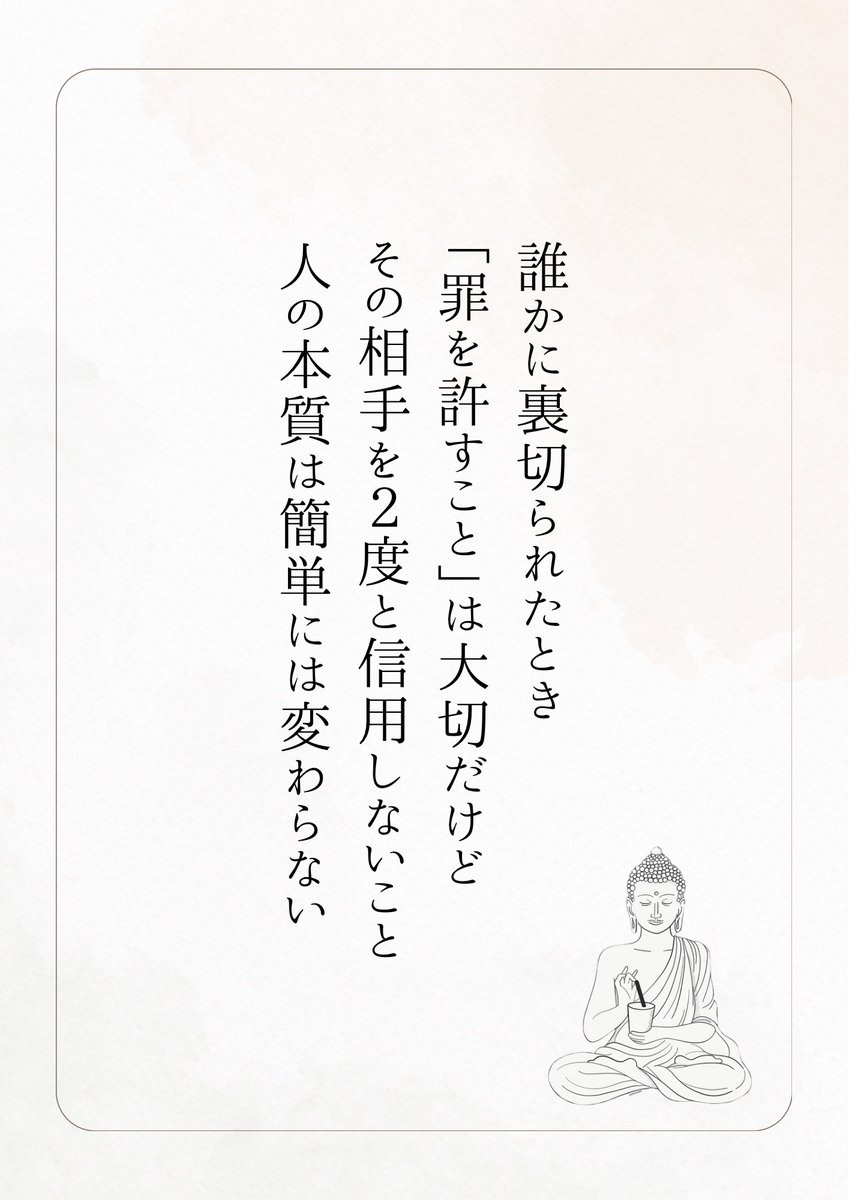 誰かに裏切られたとき
「罪を許すこと」は大切だけど
その相手を2度と信用しないこと
人の本質は簡単には変わらない